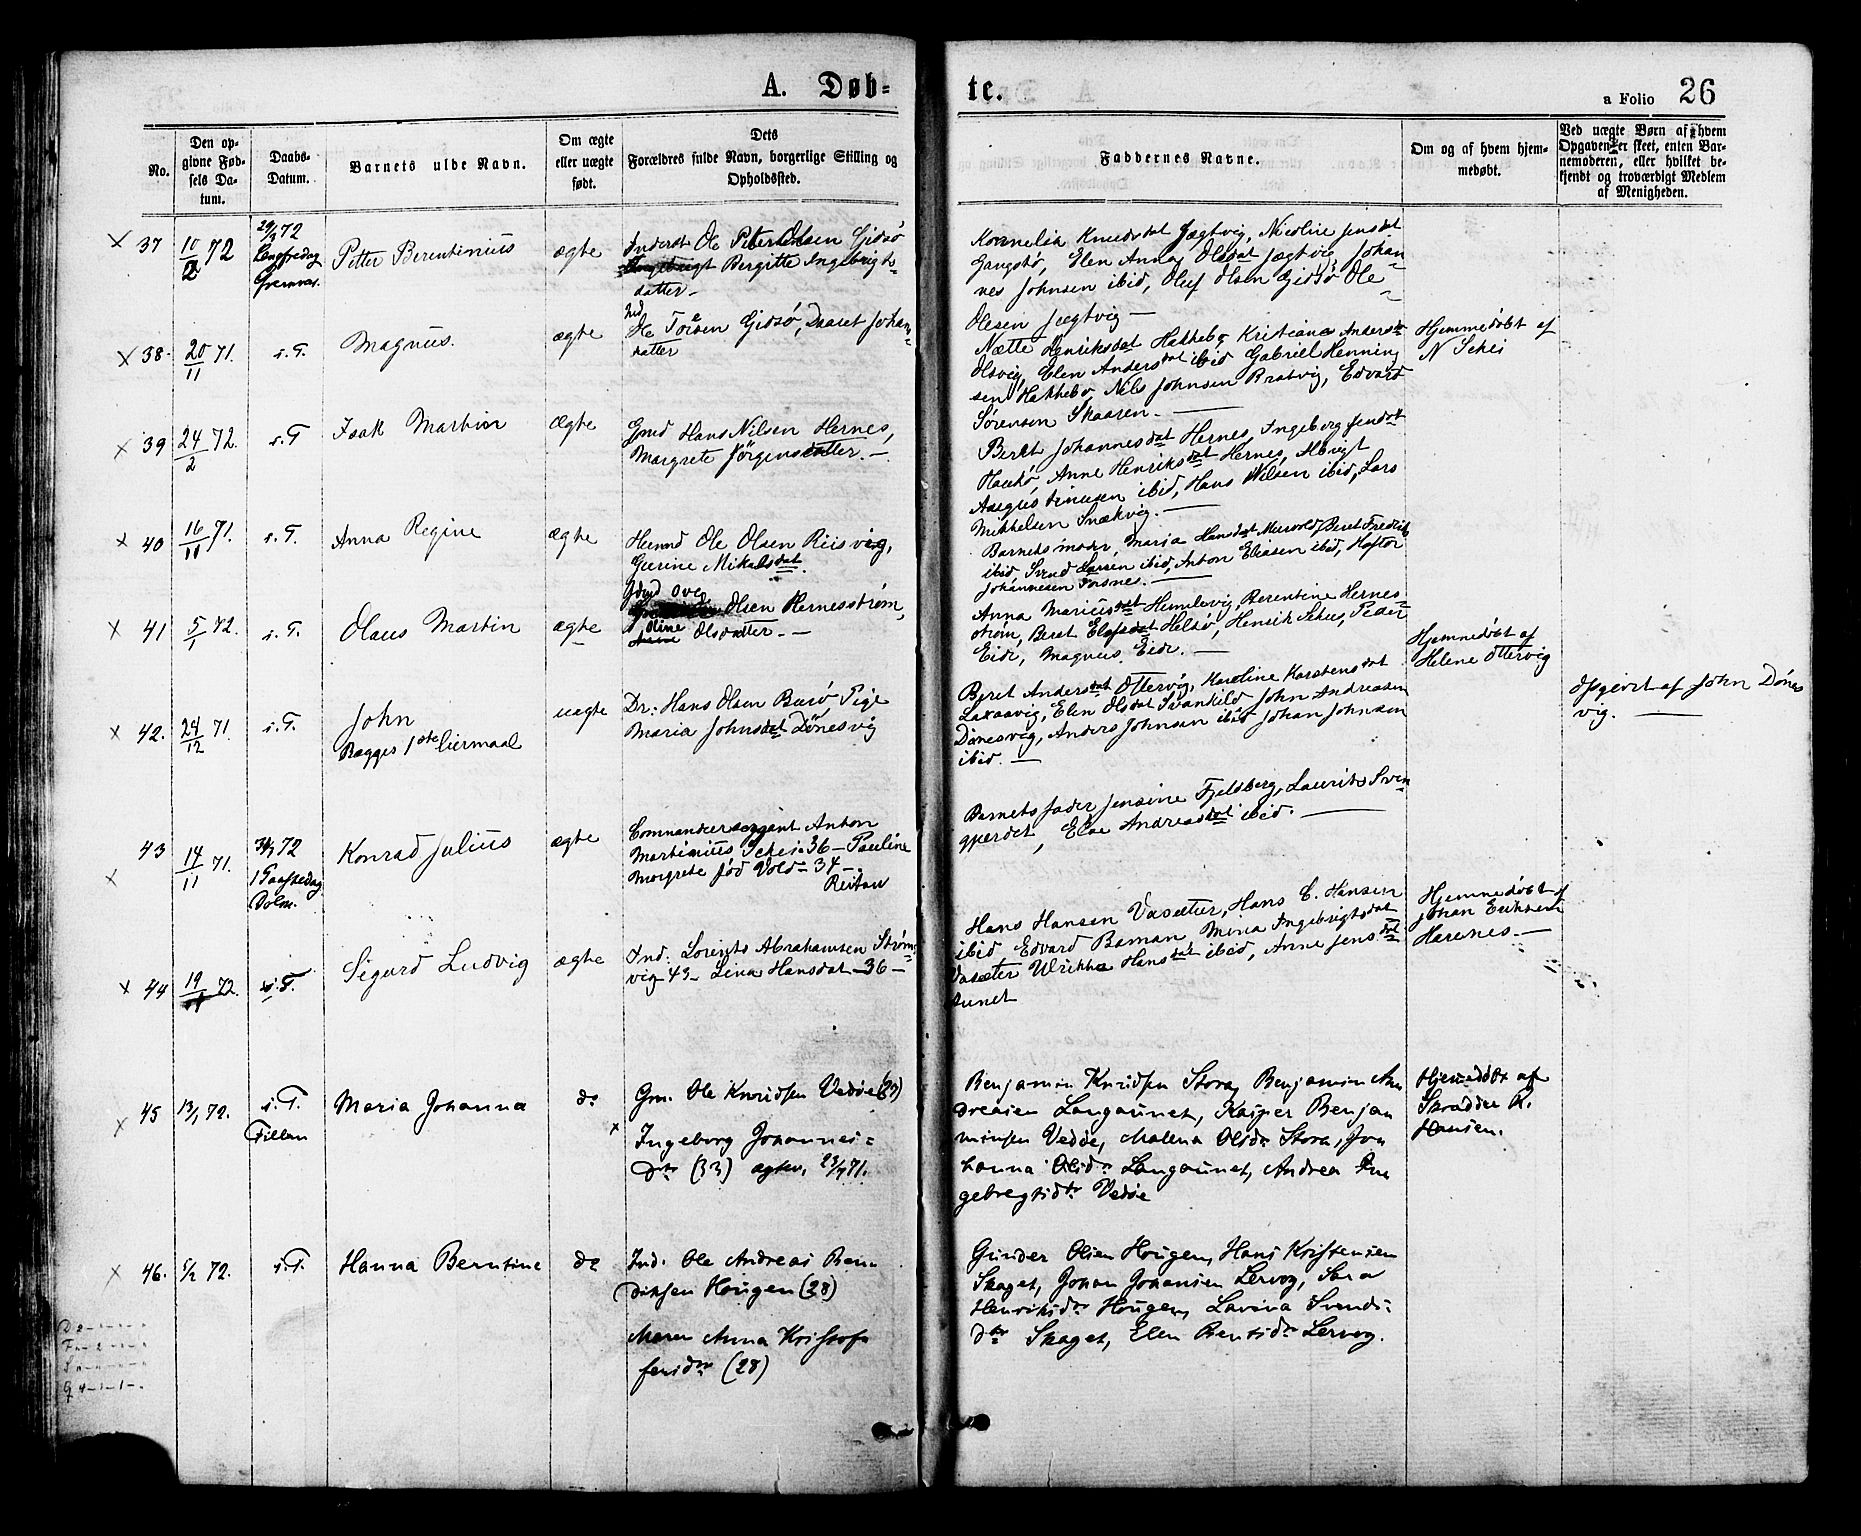 A. Døb-
te.
a Folio 26
No.
Den op-
givne Fød-
sels Da-
tum.
Daabs-
Datum.
Barnets fulde Navn.
Om ægte
eller uægte
født.
Dets
Forældres fulde Navn, borgerlige Stilling og
Opholdssted.
Faddernes Navne.
Om og af hvem hjem-
medøbt.
Ved uægte Børn af hvem
Opgaven er skeet, enten Bar-
nemoderen, eller hvilket be-
kjendt og troværdigt Medlem
af Menigheden.
37
10/2 72
29/3 72
Langfredag
Petter Berentinius
ægte
Inderst Ole Peter Olsen Gjdsø
Bergitte Ingebrigts-
datter-
Kornelia Knudsdat Jægtvig, Nicoline Jensdat
Gangstø, Elen Anna Olsdat Jægtvig, Johan-
nes Johnsen ibid, Oluf Olsen Gjdsø Ole
Olesen Jægtvig-
38.
20/11 71.
s.T.
Magnus.
ægte
Ind
Ole Gjdsø, Daaret Johan-
datter
Nætte Henriksdat Hakkebo, Kristiana Andersdt
Olsvig, Elen Andersdat ibid Gabriel Henning
sen Hakkebo, Nils Johnsen Bratvig, Edvard
Sørensen Skaaren.-
Hjemmedøbt af
N Schei
39
24/2 72.
s.T
Isak Martin
Ægte
Gmd Hans Nilsen Hernes,
Margrete Jörgensdatter.-
Beret Johannesdat Hernes, Ingeborg Jensdat
Anne Henriksdat Hernes, Albrigt
ibid, Hans Nilsen ibid, Lars
Mikkelsen Snækvig.-
40
16/11 71.
s.T.
Anna Regine
ægte
Ole Olsen Riisvig,
Gurine Mikalsdat
Barnets moder, Maria Hansdat Beret Fredrik
ibid Svend Larsen ibid, Anton Eliasen ibid, Haftor
Johannesen Forsnes.-
41
5/1 72.
s.T.
Olaus Martin
ægte
Ove
Olsen Hernesstrøm,
Oline
Olsdatter.-
Anna Mariusdat Humlevig, Berentine Hernes-
strøm, Beret Elofsdat Helsø, Henrik Peder
Eide, Magnus Eide.-
42.
24/12 71.
s.T.
John
Bægges 1ste Leiermaal
uægte
Dr: Hans Olsen Busø, Pige
Maria Johnsdat Dönesvig
Beret Andersdat Ottervig, Karoline Karstensdat
Laxaavig, Elen Olsdat Svankild, John Andreasen
Dönesvig, Anders Johnsen ibid Johan Johnsen
ibid.-
Hjemmedøbt af
Helene Ottervig
Opgivet af John Dönes
vig.-
43
14/11 71.
72
1 Paaskedag
Dolm.
Konrad Julius
ægte
Commandeersergent Anton
Martinius Schei 36 - Pauline
Margrete fød Vold - 34-
Reitan
Barnets fader Jensine Fjeldberg, Laurits Sven
gjerdet, Else Andreasdat ibid.-
44
19/ 72.
s.T.
Sigurd Ludvig
ægte
Ind: Lorents Abrahamsen Strøm-
vig 43- Lina Hansdat -36-
Hans Hansen Vasæter, Hans C. Hansen
ibid Edvard Baman Mina Ingebrigtsdat
Vasæter Ulrikka Hansdat ibid, Anne Jensdat
Hjemmedøbt af
Johan Eriksen
Havnes.-
45
13/1 72.
s.T.
Fillan
Maria Johanna
do
Gm. Ole Knudsen Vedøe (27)
Ingeborg Johannes-
dtr (33) 23/7 71.
Benjamin Knudsen Stora, Benjamin An
dreasen Langaunet, Kasper Benja
minsen Vedøe, Malena Olsdr Stora, Jo
hanna Olsdr Langaunet, Andrea In
gebregtsdtr Vedøe
Hjemmedøbt af
Skrædder R.
Hansen.
46.
5/2 72.
s.T.
Hanna Berntine
do
Ind. Ole Andreas Ben
diksen Hougen (28)
Maren Anna Kristof
fersdtr (28)
Gunder Olsen Hougen, Hans Kristensen
Skaget, Johan Johansen Lervog, Sara
Henriksdtr Hougen, Lavina Svends-
dtr Skaget, Elen Bentsdr Lervog.